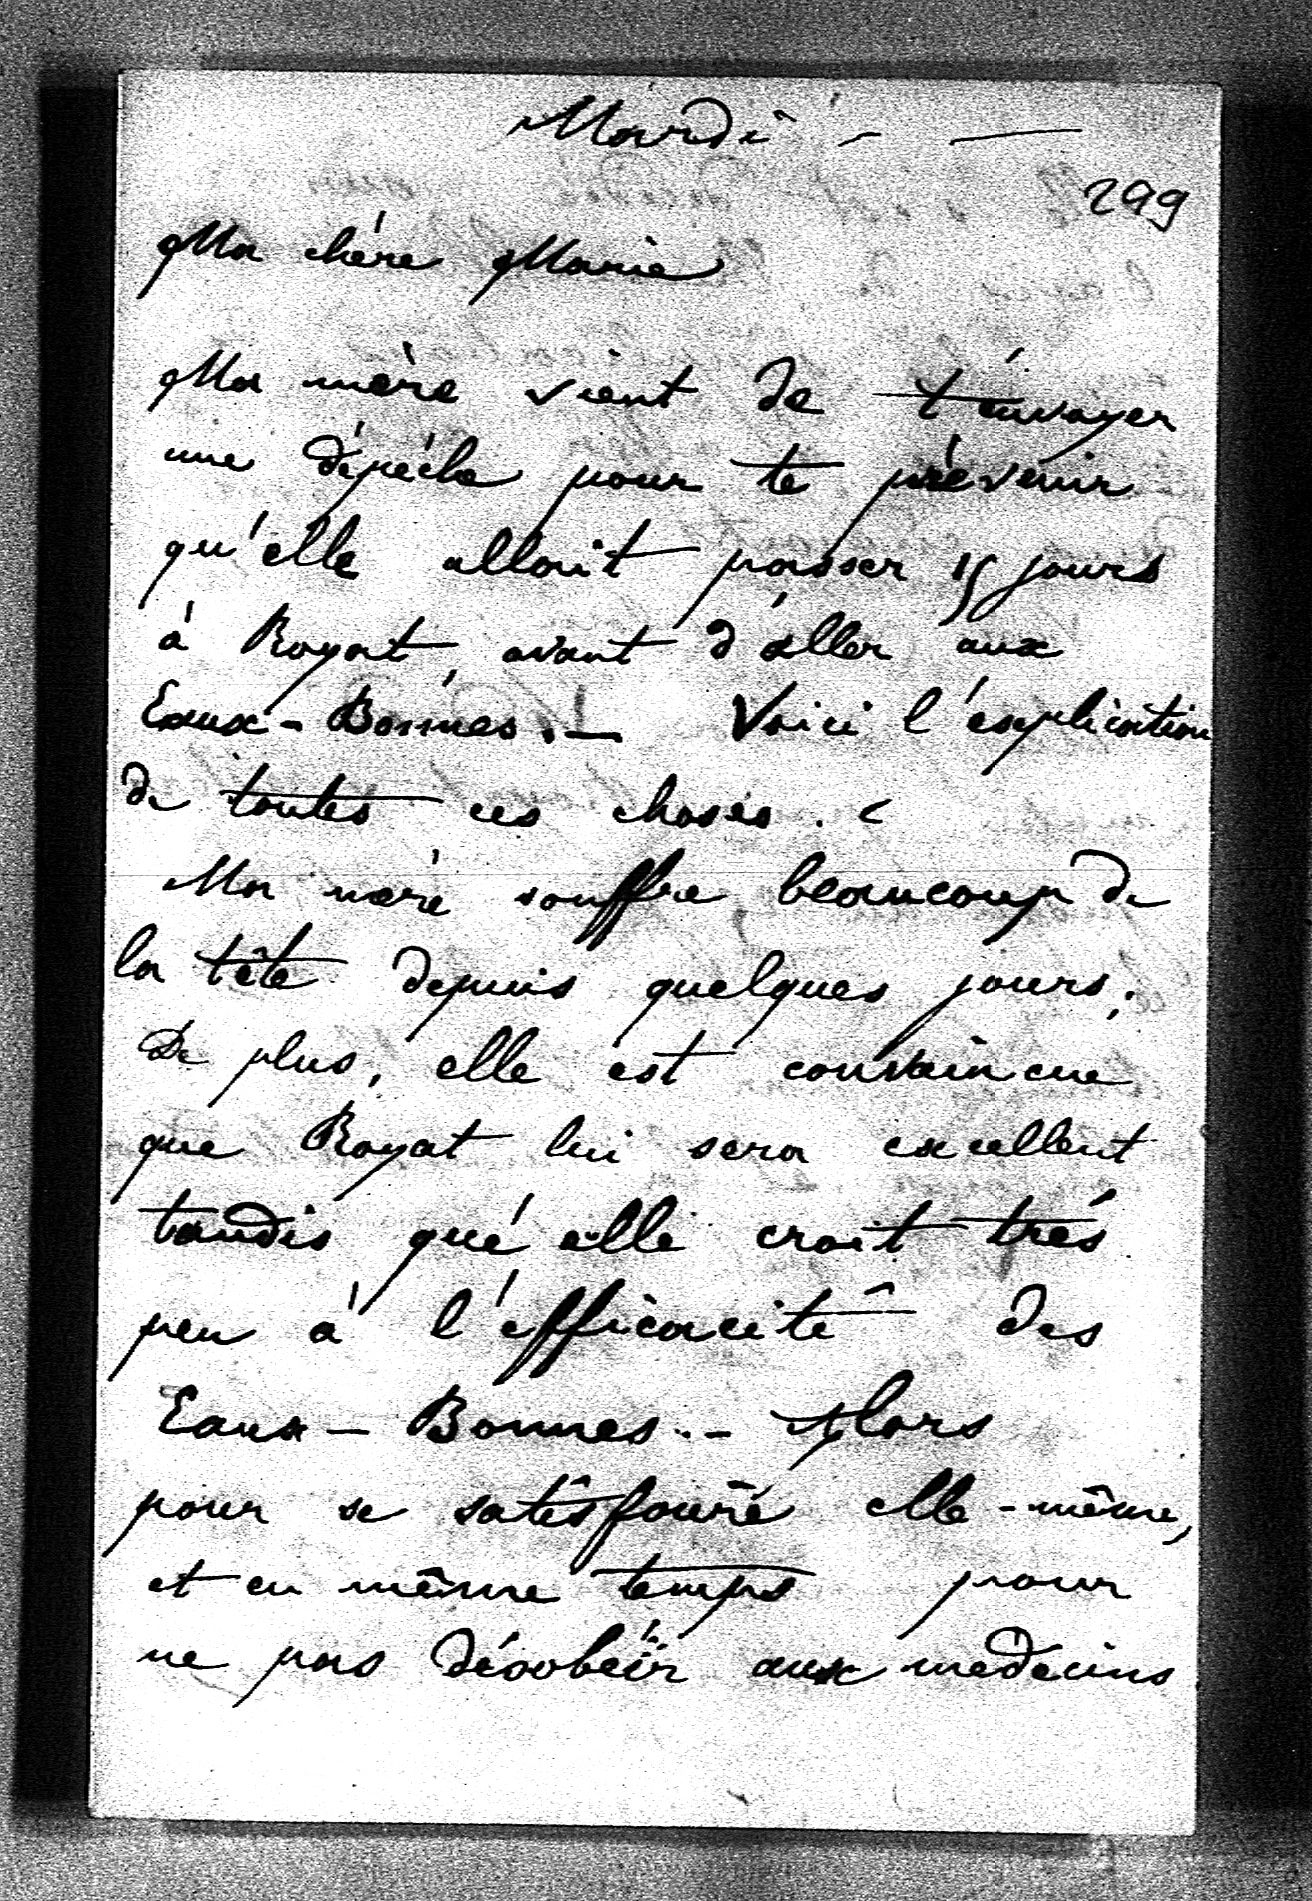 Mardi –
299
Ma chère Marie
Ma mère vient de t'envoyer
une dépêche pour te prévenir
qu'elle allait passer 15 jours
à Royat, avant d'aller aux
Eaux-Bonnes. — Voici l'explication
de toutes ces choses. –
Ma mère souffre beaucoup de
la tête depuis quelques jours.
De plus, elle est convaincue
que Royat lui sera excellent
tandis qu'elle croit très
peu à l'efficacité des
Eaux-Bonnes. – Alors
pour se satisfaire elle-même,
et en même temps pour
ne pas désobéir aux médecins